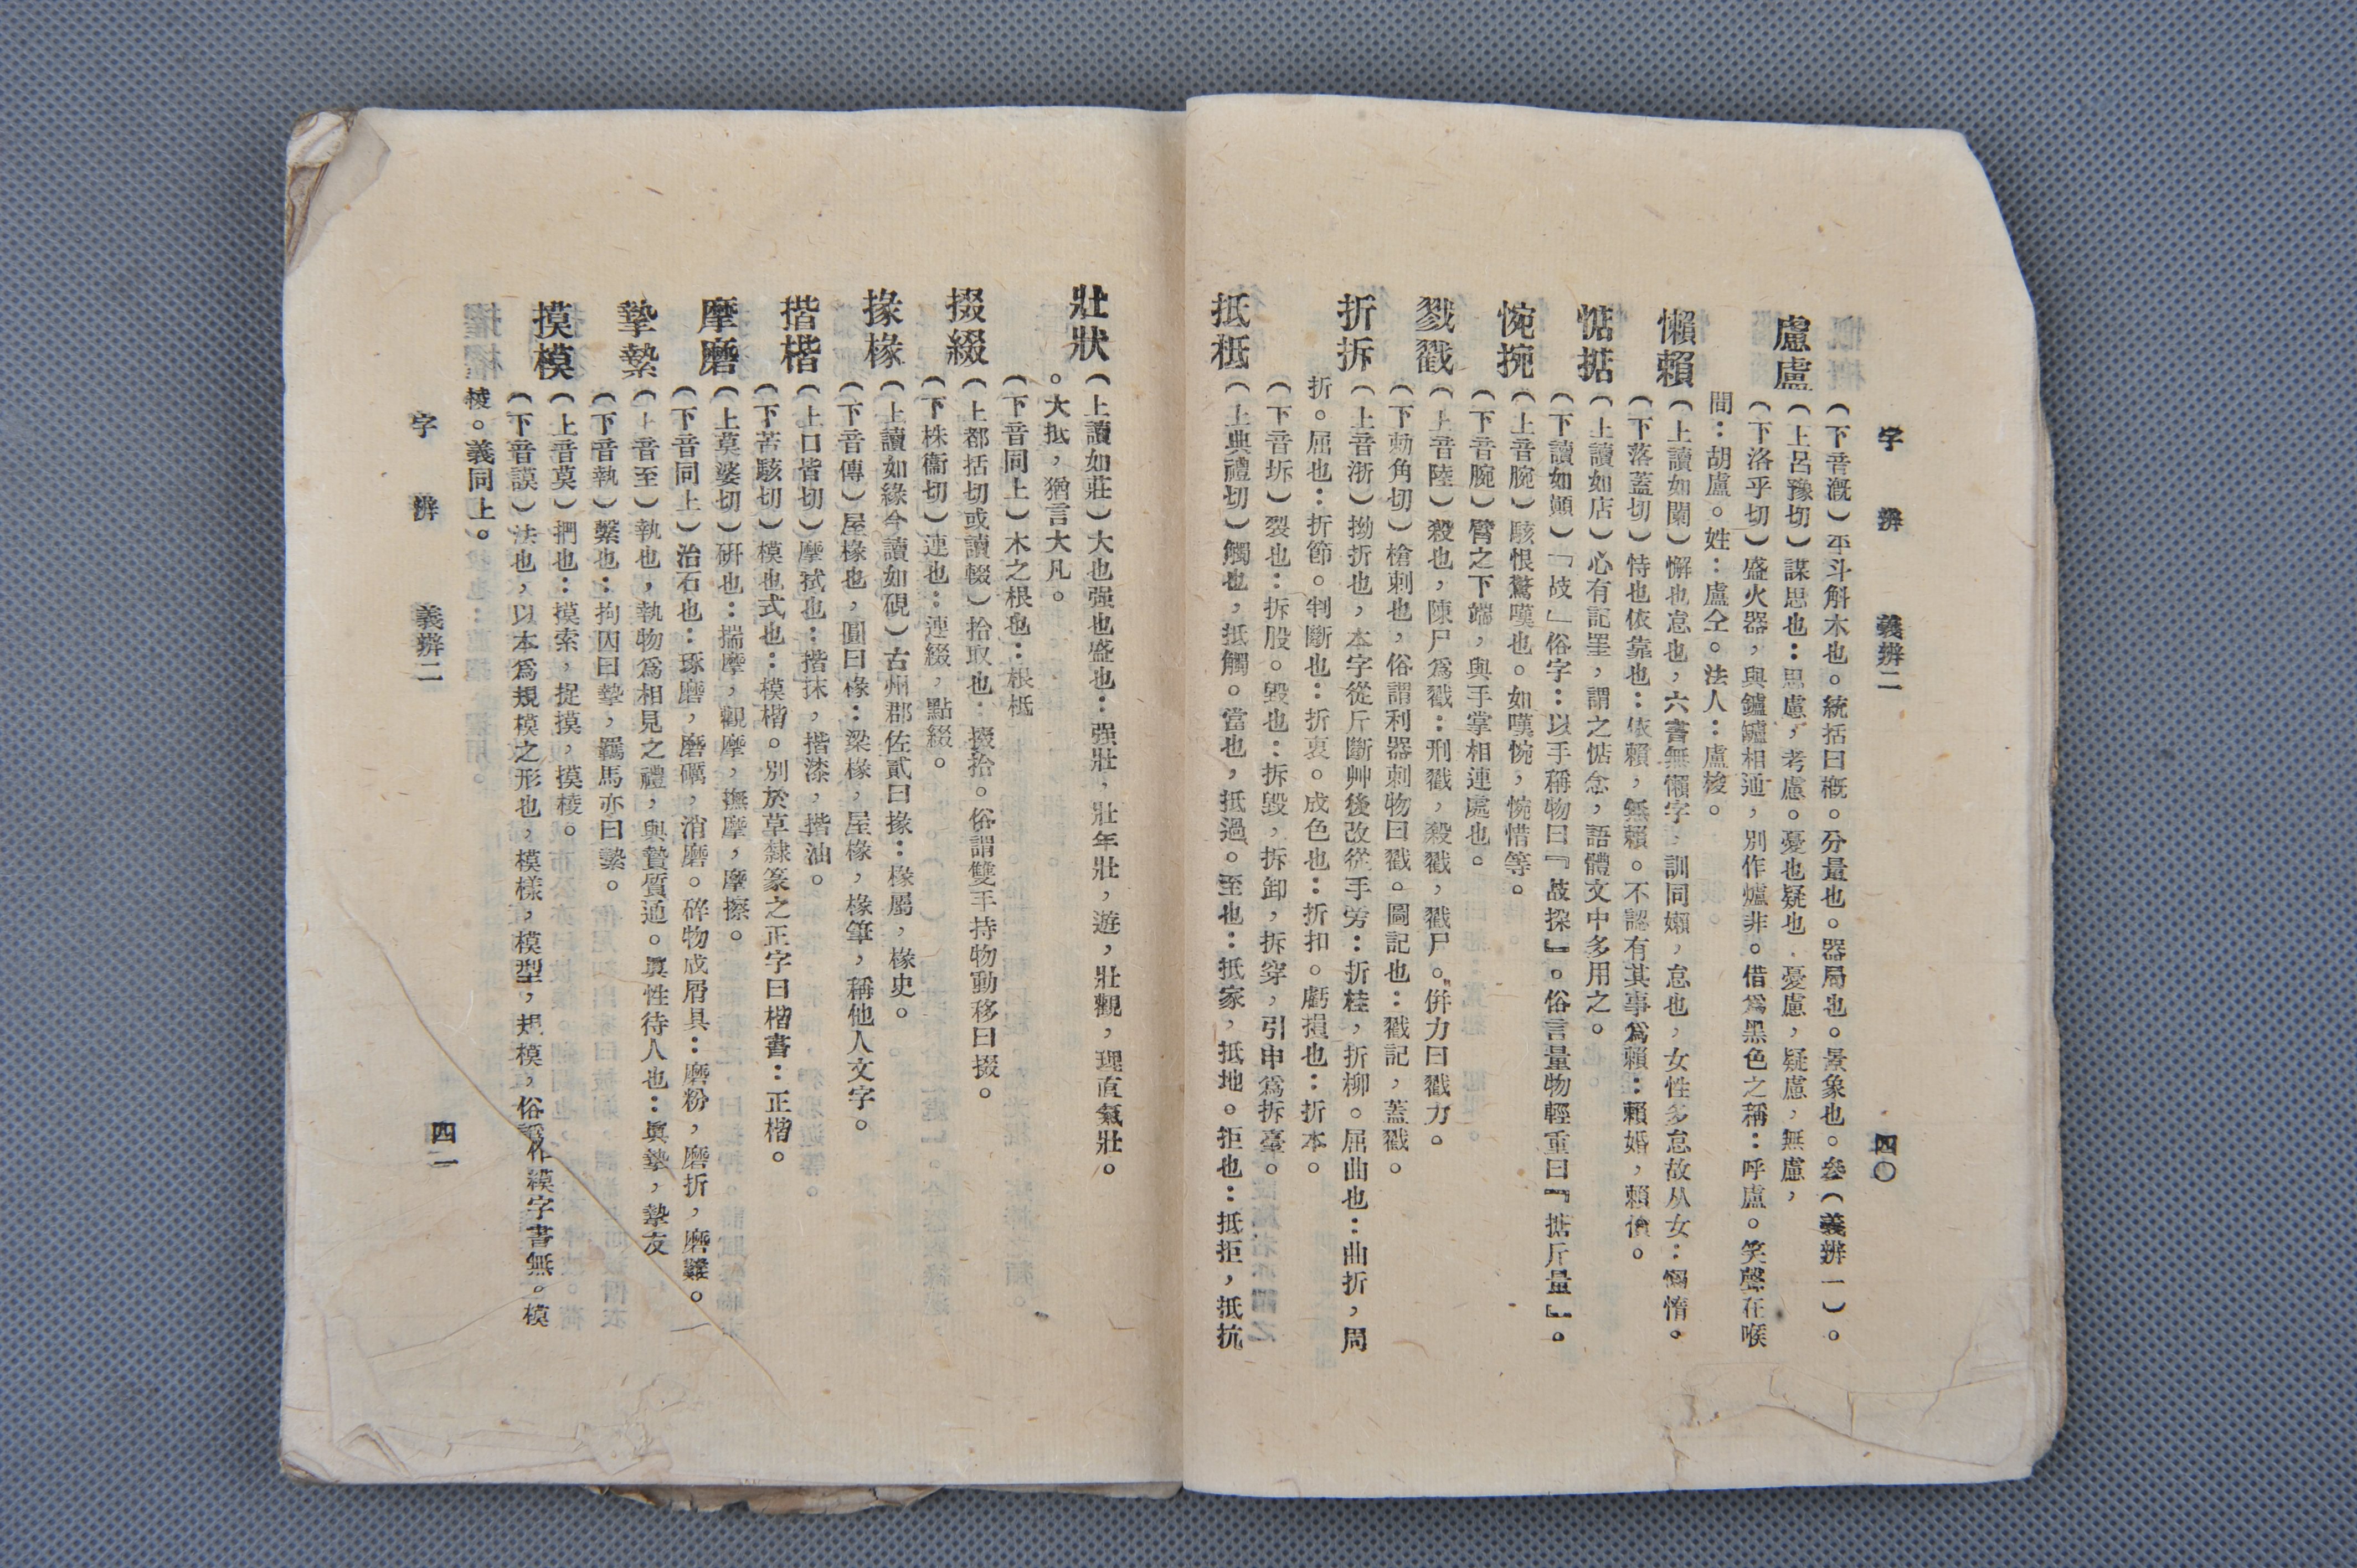 字　辨　義辨二　四〇
（下音漑）平斗斛木也。統括曰概。分量也。器局也。景象也。叅（義辨一）。
慮盧（上呂豫切）謀思也：思慮，考慮。憂也疑也．憂慮，疑慮，無慮，
（下洛乎切）盛火器，與鑪罏相通，別作爐非。借爲黑色之稱：呼盧。笑聲在喉
間：胡盧。姓：盧仝。法人：盧梭。
懶賴（上讀如闌）懈也怠也，六書無懶字，訓同嬾，怠也，女性多怠故从女：懶惰。
（下落蓋切）恃也依靠也：依賴，無賴。不認有其事爲賴：賴婚，賴債。
惦掂（上讀如店）心有記罣，謂之惦念，語體文中多用之。
（下讀如顚）「敁」俗字：以手稱物曰『敁探』。俗言量物輕重曰『掂斤量』。
惋捥（上音腕）駭恨驚嘆也。如嘆惋，惋惜等。
（下音腕）臂之下端，與手掌相連處也。
戮戳（上音陸）殺也，陳尸爲戳：刑戳，殺戳，戳尸。併力曰戳力。
（下勅角切）槍刺也，俗謂利器刺物曰戳。圖記也：戳記，蓋戳。
折拆（上音浙）拗折也，本字從斤斷艸後改從手旁：折桂，折柳。屈曲也：曲折，周
折。屈也：折節。判斷也：折衷。成色也：折扣。虧損也：折本。
（下音坼）裂也：拆股。毀也：拆毀，拆卸，拆穿，引申爲拆臺。
抵柢（上典禮切）觸也，抵觸。當也，抵過。至也：抵家，抵地。拒也：抵拒，抵抗
壯狀（上讀如莊）大也强也盛也：强壯，壯年壯，遊，壯觀，理直氣壯。
。大抵，猶言大凡。
（下音同上）木之根也：根柢
掇綴（上都括切或讀輟）拾取也：掇拾。俗謂雙手持物動移曰掇。
（下株衞切）連也：連綴，點綴。
掾椽（上讀如緣今讀如硯）古州郡佐貳曰掾：掾屬，掾史。
（下音傳）屋椽也，圓曰椽：梁椽，屋椽，椽筆，稱他人文字。
揩楷（上口皆切）摩拭也：揩抹，揩漆，揩油。
（下苦駭切）模也式也：模楷。別於草隸篆之正字曰楷書：正楷。
摩磨（上莫婆切）硏也：揣摩，觀摩，撫摩，摩擦。
（下音同上）治石也：琢磨，磨礪，消磨。碎物成屑具：磨粉，磨折，磨難。
摯縶（上音至）執也，執物爲相見之禮，與贄質通。眞性待人也：眞摯，摯友
（下音執）繫也：拘囚曰摯，羈馬亦曰縶。
摸模（上音莫）捫也：摸索，捉摸，摸稜。
（下音謨）法也，以本爲規模之形也，模樣，模型，規模，俗譌作糢字書無。模
棱。義同上。
字　辨　義辨二　四一